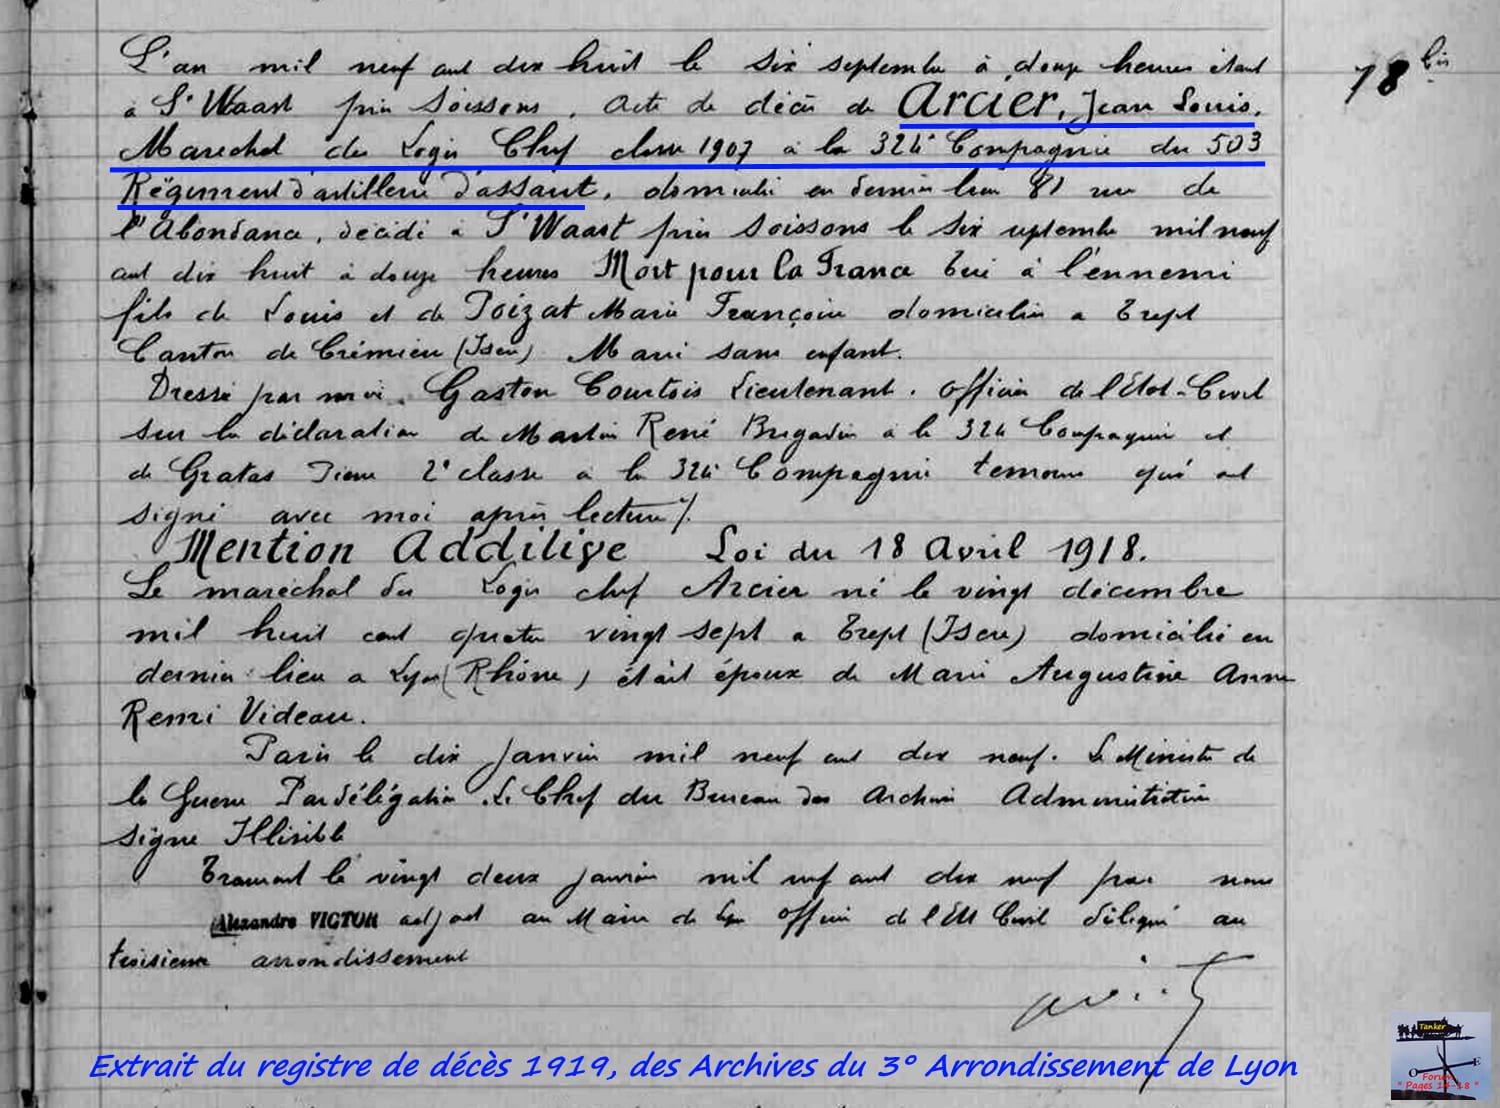 L'an mil neuf cent dix huit le six septembre à douze heures étant
à St Waast près Soissons, acte de décès de Arcier, Jean Louis,
Maréchal des Logis Chef classe 1907 à la 324e Compagnie du 503
Régiment d'artillerie d'assaut, domicilié en dernier lieu 81 rue de
l'Abondance, décédé à St Waast près Soissons le six septembre mil neuf
cent dix huit à douze heures Mort pour la France tué à l'ennemi
fils de Louis et de Poizat Marie Françoise domiciliés à Trept
Canton de Crémieu (Isère) Marié sans enfant.
Dressé par moi, Gaston Courtois Lieutenant, officier de l'Etat-Civil
sur la déclaration de Martin René Brigadier à la 324 Compagnie et
de Gratas 2e classe à la 324e Compagnie témoins qui ont
signé avec moi après lecture ./.
Mention Additive Loi du 18 Avril 1918.
Le maréchal des Logis chef Arcier né le vingt décembre
mil huit cent quatre vingt sept à Trept (Isère) domicilié en
dernier lieu à Lyon (Rhône) était époux de Marie Augustine Anne
Remi Videau.
Paris le dix Janvier mil neuf cent dix neuf. Le Ministre de
la Guerre Par délégation, Le Chef du Bureau des Archives Administratives
signé Illisible
Transcrit le vingt deux janvier mil neuf cent dix neuf par nous
Alexandre VICTOR adjoint au Maire de Lyon officier de l'Etat Civil délégué au
troisième arrondissement
78 bis
Extrait du registre de décès 1919, des Archives du 3° Arrondissement de Lyon
Tanker
O E
Forum
" Pages 14-18 "